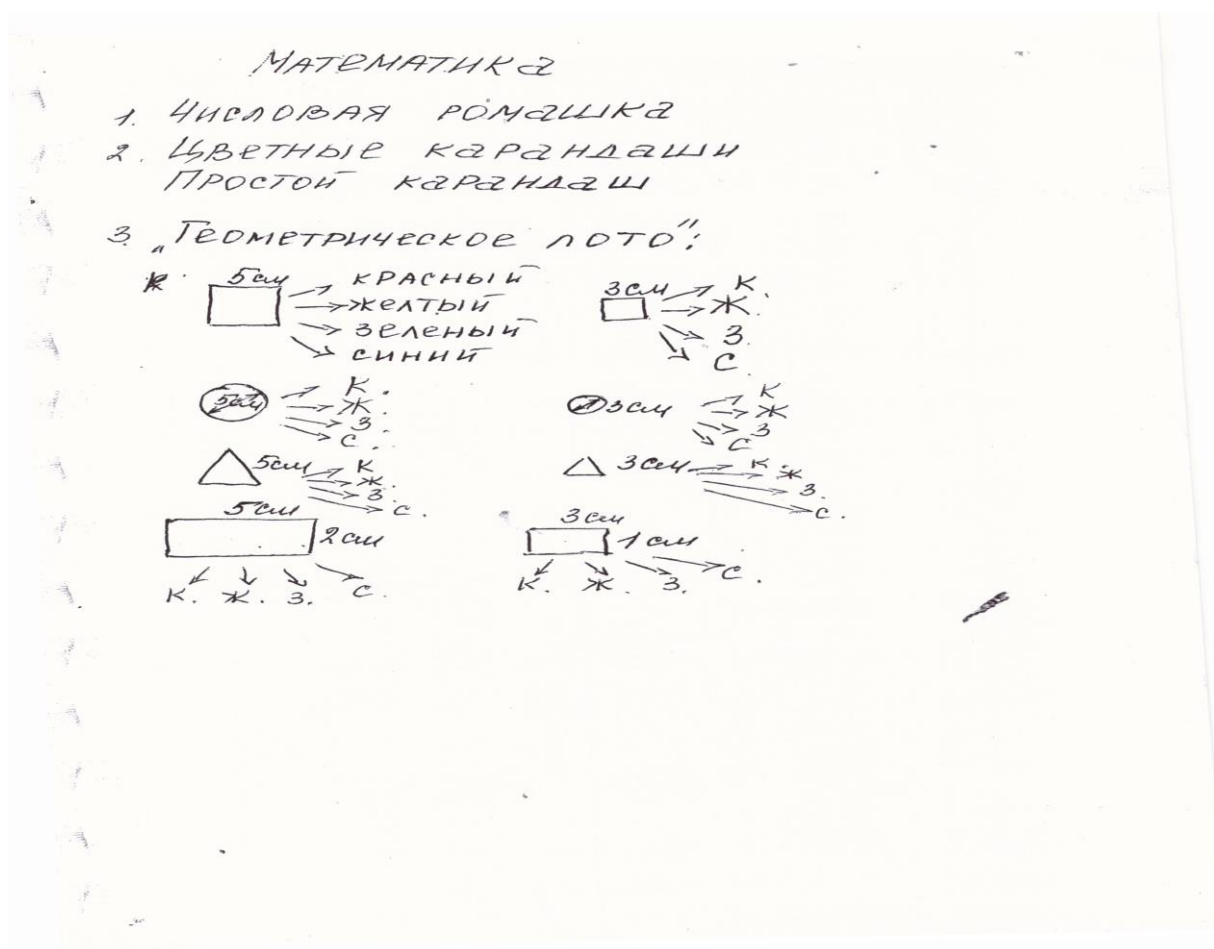 Математика
1. Числовая ромашка
2. Цветные карандаши
Простой карандаш
3. „Геометрическое лото":
5 см
красный
желтый
зеленый
синий
3 см
К.
Ж.
З.
С.
5 см
К.
Ж.
З.
С.
3 см
К
Ж
З
С
5 см
К
Ж.
З.
С.
3 см
К.
Ж
З.
С.
5 см
2 см
К. Ж. З. С.
3 см
1 см
К. Ж. З. С.